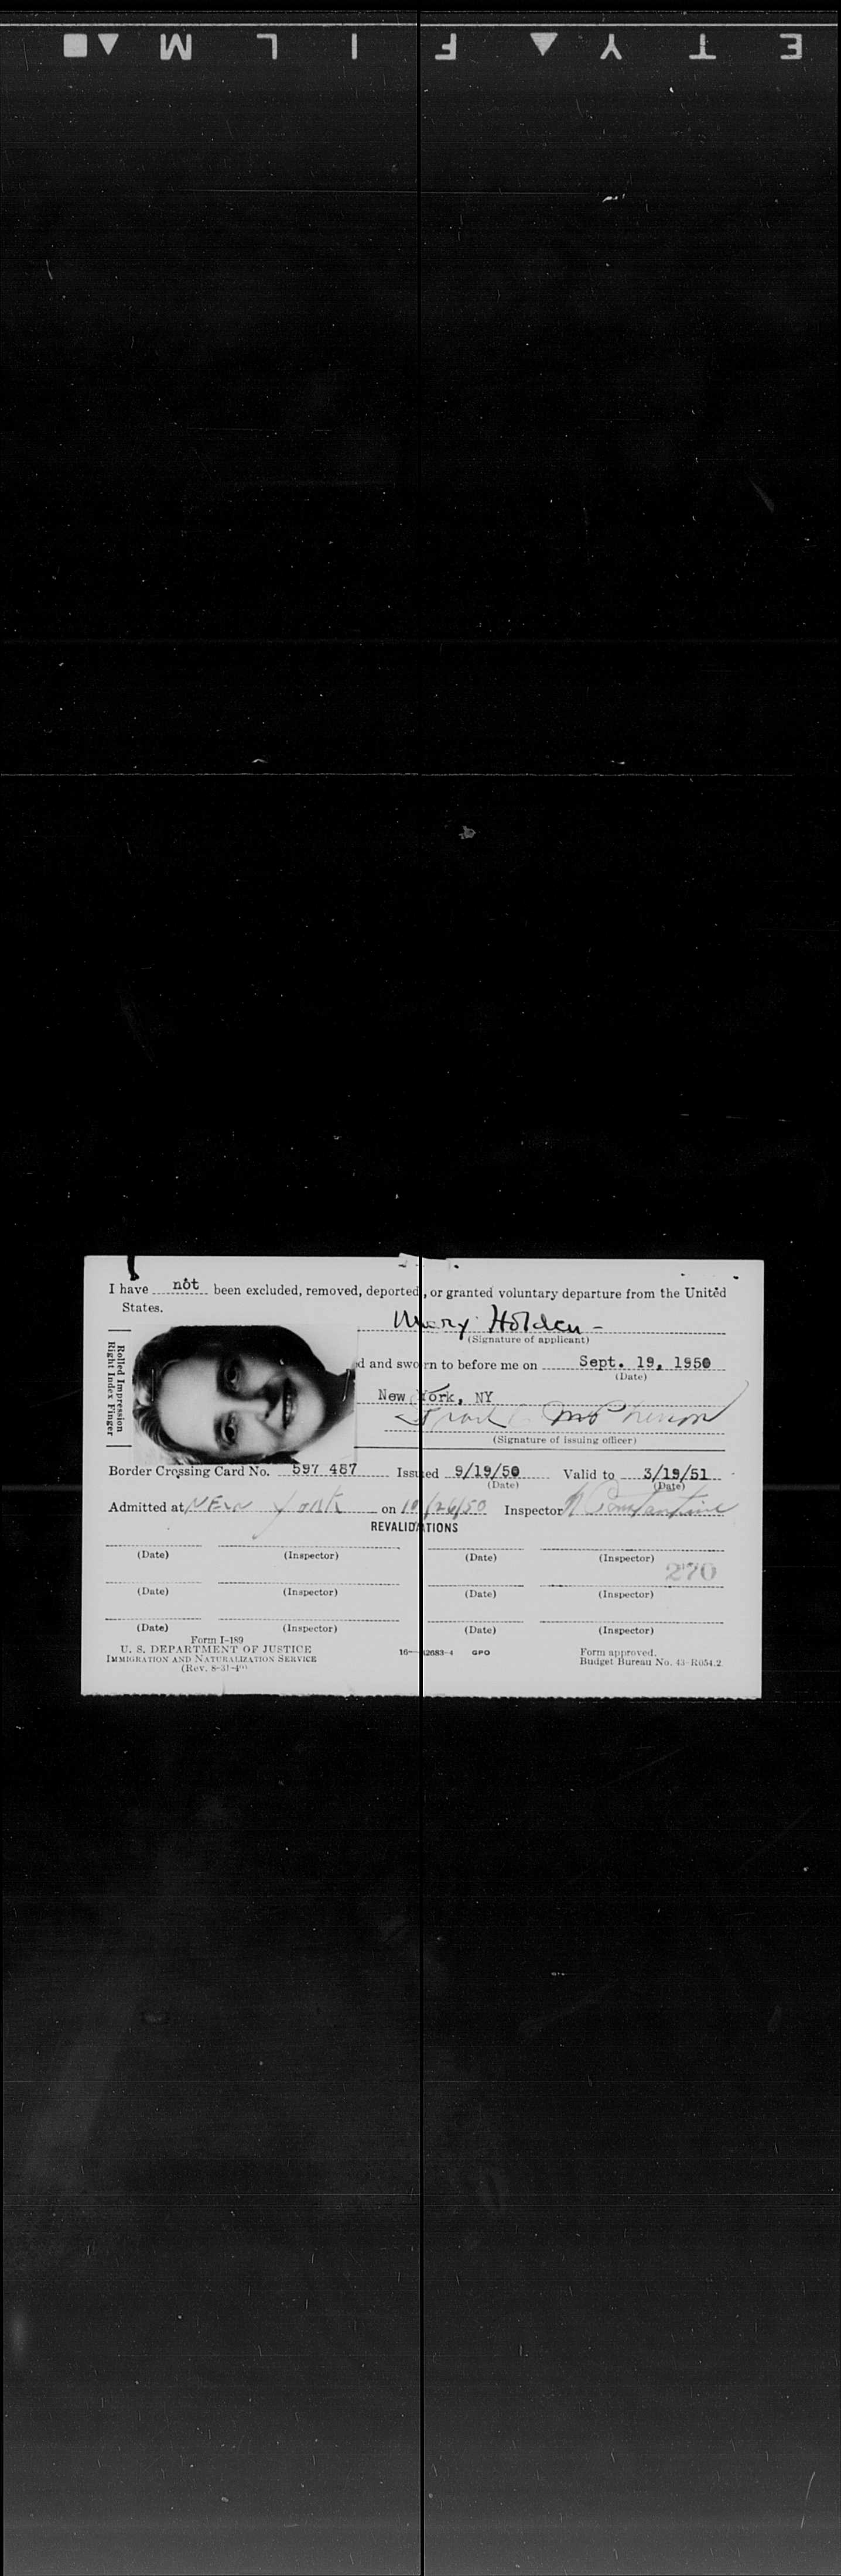 SAFETY▲FILM▲■
I have not been excluded, removed, deported, or granted voluntary departure from the United
States.
Mary Holden -
(Signature of applicant)
Rolled Impression
Right Index Finger
d and sworn to before me on Sept. 19, 1950
(Date)
New York, NY
(Signature of issuing officer)
Border Crossing Card No. 597 487 Issued 9/19/50 Valid to 3/19/51
(Date) (Date)
Admitted at New York on 10/26/50 Inspector Constantine
REVALIDATIONS
(Date) (Inspector) (Date) (Inspector)
270
(Date) (Inspector) (Date) (Inspector)
(Date) (Inspector) (Date) (Inspector)
Form I-189
U. S. DEPARTMENT OF JUSTICE 16— 42683-4 GPO Form approved.
IMMIGRATION AND NATURALIZATION SERVICE Budget Bureau No. 43-R054.2.
(Rev. 8-31-49)